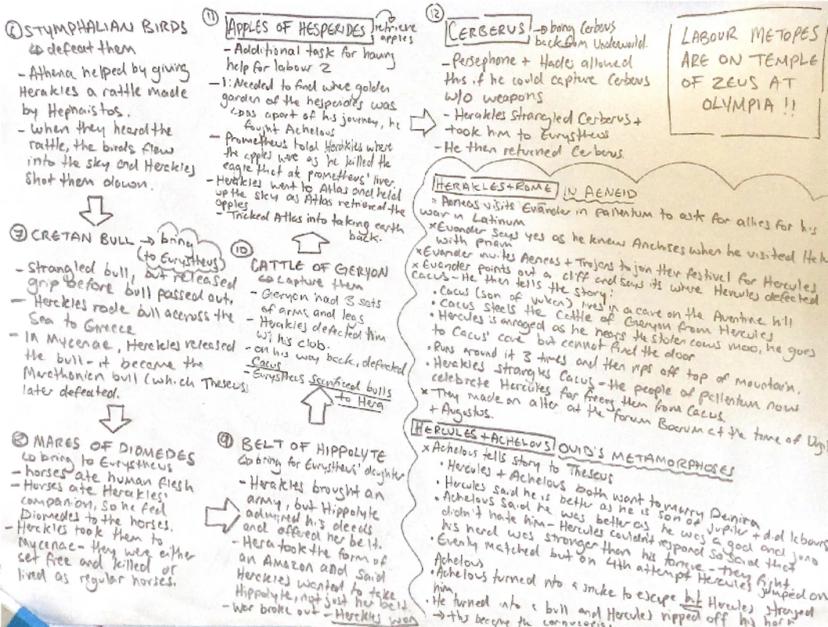 ⑥ STYMPHALIAN BIRDS
↳ defeat them
- Athena helped by giving
Herakles a rattle made
by Hephaistos.
- When they heard the
rattle, the birds flew
into the sky and Herakles
shot them down.
⑦ CRETAN BULL → bring
(to Eurystheus)
- Strangled bull, but released
grip before bull passed out.
- Herkles rode bull accross the
Sea to Greece
- In Mycenae, Herkles released
the bull - it became the
Marathonian bull (which Theseus)
later defeated.
⑧ MARES OF DIOMEDES
↳ bring to Eurystheus
- horses ate human flesh
- Horses ate Herakles'
companion, so he fed
Diomedes to the horses.
- Herkles took them to
Mycenae - they were either
set free and killed or
lived as regular horses.
⑨ BELT OF HIPPOLYTE
↳ bring for Eurystheus' daughter
- Herakles brought an
army, but Hippolyte
admired his deeds
and offered her belt.
- Hera took the form of
an Amazon and said
Herkles wanted to take
Hippolyte, not just her belt.
- War broke out - Herkles won
⑩ CATTLE OF GERYON
↳ capture them
- Geryon had 3 sets
of arms and legs
- Herakles defeated him
w/ his club.
- on his way back, defeated
Cacus
- Eurystheus sacrificed bulls
to Hera
⑪ APPLES OF HESPERIDES retrieve
apples
- Additional task for having
help for labour 2
- 1: Needed to find where golden
garden of the hesperides was
↳ as apart of his journey, he
fought Achelous
- Prometheus told Herakles where
the apples were as he killed the
eagle that ate prometheus' liver.
- Herkles went to Atlas and held
up the sky as Atlas retrieved the
apples
- Tricked Atlas into taking earth
back.
⑫ CERBERUS → bring Cerberus
back from Underworld.
- Persephone + Hades allowed
this if he could capture Cerberus
w/o weapons
- Herakles strangled Cerberus +
took him to Eurystheus
- He then returned Cerberus.
LABOUR METOPES
ARE ON TEMPLE
OF ZEUS AT
OLYMPIA !!
HERAKLES + ROME IN AENEID
× Aeneas visits Evander in pallentum to ask for allies for his
war in Latinum
× Evander says yes as he knew Anchises when he visited
with priam
× Evander invites Aeneas + Trojans to join their festival for Hercules
× Evander points out a cliff and says its where Hercules defeated
Cacus - He then tells the story:
• Cacus (son of vulcan) lives in a cave on the Aventine hill
• Cacus steels the Cattle of Gheryon from Hercules
• Hercules is enraged as he hears the stolen cows moo, he goes
to Cacus' cave but cannot find the door
• Runs around it 3 times and then rips off top of mountain.
• Herakles strangles Cacus - the people of pallentum now
celebrate Hercules for freeing them from Cacus
× They made an alter at the forum Boarum at the time of
+ Augustus.
HERCULES + ACHELOUS OVID'S METAMORPHOSES
× Achelous tells story to Theseus
• Hercules + Achelous both want to marry Deinira
• Hercules said he is better as he is son of Jupiter + did labours
• Achelous said he was better as he was a god and juno
didn't hate him - Hercules couldn't respond so said that
his hand was stronger than his tongue - they fight.
• Evenly matched but on 4th attempt Hercules jumped on
Achelous
• Achelous turned into a snake to escape but Hercules
him,
• He turned into a bull and Hercules ripped off his horn
→ this became the cornucopia